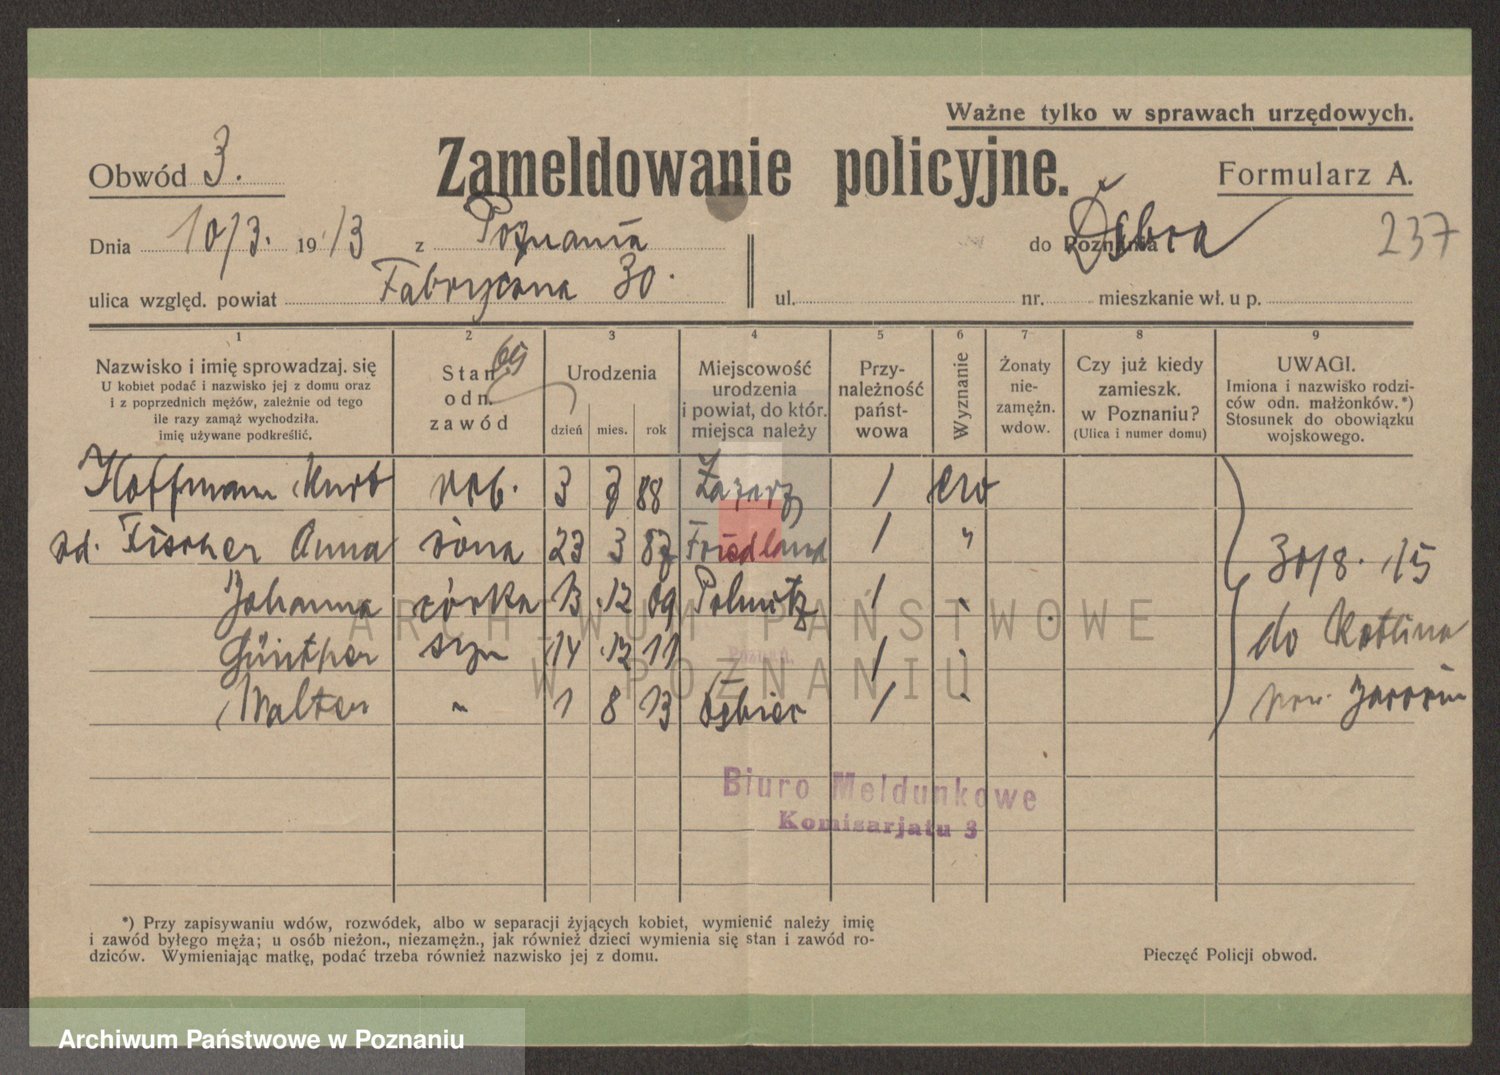 Ważne tylko w sprawach urzędowych.
Obwód 3.
Zameldowanie policyjne.
Formularz A.
Dnia 10/3. 1913 z Poznania
do Poznania
237
ulica względ. powiat Fabryczna 30.
ul. nr. mieszkanie wł. u p.
1 2 3 4 5 6 7 8 9
Nazwisko i imię sprowadzaj. się
U kobiet podać i nazwisko jej z domu oraz
i z poprzednich mężów, zależnie od tego
ile razy zamąż wychodziła.
imię używane podkreślić.
Stan
odn.
zawód
Urodzenia
dzień mies. rok
Miejscowość
urodzenia
i powiat, do któr.
miejsca należy
Przy-
należność
państ-
wowa
Wyznanie
Żonaty
nie-
zamężn.
wdow.
Czy już kiedy
zamieszk.
w Poznaniu?
(Ulica i numer domu)
UWAGI.
Imiona i nazwisko rodzi-
ców odn. małżonków.*)
Stosunek do obowiązku
wojskowego.
Hoffmann Kurt rob. 3 88 /
zd. Fischer Anna żona 23 3 Friedland / "
Johanna córka 13 .12 09 /
Günther syn 14 .12 11 /
Walter " 1 8 13 Dębiec /
30/8. 15
do Kotlina
pow. Jarocin
Biuro Meldunkowe
Komisarjatu 3
*) Przy zapisywaniu wdów, rozwódek, albo w separacji żyjących kobiet, wymienić należy imię
i zawód byłego męża; u osób nieżon., niezamężn., jak również dzieci wymienia się stan i zawód ro-
dziców. Wymieniając matkę, podać trzeba również nazwisko jej z domu.
Pieczęć Policji obwod.
ARCHIWUM PAŃSTWOWE
W POZNANIU
Archiwum Państwowe w Poznaniu